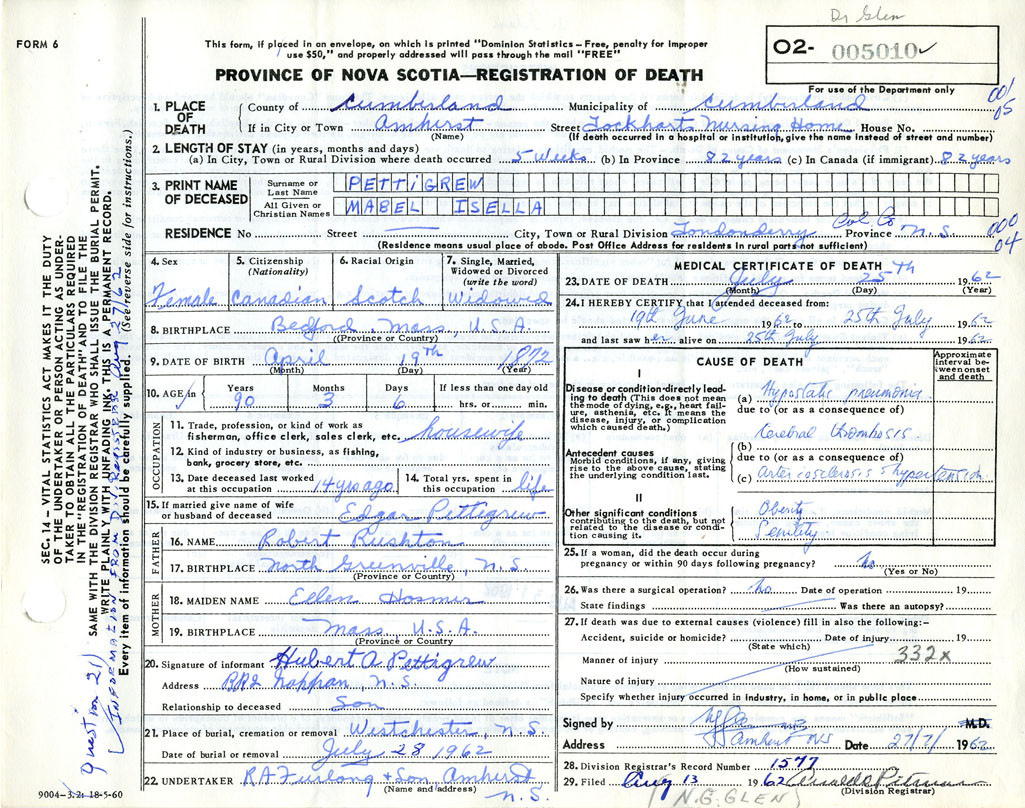 Dr Glen
FORM 6
This form, if placed in an envelope, on which is printed "Dominion Statistics – Free, penalty for improper
use $50," and properly addressed will pass through the mail "FREE"
O2- 005010 ✓
PROVINCE OF NOVA SCOTIA—REGISTRATION OF DEATH
For use of the Department only
001
05
1. PLACE OF DEATH
County of Cumberland Municipality of Cumberland
If in City or Town Amherst Street Lockharts Nursing Home House No.
(Name) (If death occurred in a hospital or institution, give the name instead of street and number)
2. LENGTH OF STAY (in years, months and days)
(a) In City, Town or Rural Division where death occurred 5 Weeks (b) In Province 82 years (c) In Canada (if immigrant) 82 years
3. PRINT NAME OF DECEASED
Surname or Last Name PETTIGREW
All Given or Christian Names MABEL ISELLA
RESIDENCE No Street City, Town or Rural Division Londonderry Col Co Province N.S.
(Residence means usual place of abode. Post Office Address for residents in rural parts not sufficient)
000
04
4. Sex
Female
5. Citizenship (Nationality)
Canadian
6. Racial Origin
Scotch
7. Single, Married, Widowed or Divorced (write the word)
Widowed
8. BIRTHPLACE Bedford, Mass, U.S.A.
(Province or Country)
9. DATE OF BIRTH April 19th 1872
(Month) (Day) (Year)
10. AGE Years 90 Months 3 Days 6 If less than one day old hrs. or min.
OCCUPATION
11. Trade, profession, or kind of work as
fisherman, office clerk, sales clerk, etc. housewife
12. Kind of industry or business, as fishing,
bank, grocery store, etc.
13. Date deceased last worked
at this occupation 14 yrs ago
14. Total yrs. spent in
this occupation life
15. If married give name of wife
or husband of deceased Edgar Pettigrew
FATHER
16. NAME Robert Rushton
17. BIRTHPLACE North Greenville, N.S.
(Province or Country)
MOTHER
18. MAIDEN NAME Ellen Hosmer
19. BIRTHPLACE Mass U.S.A.
(Province or Country)
20. Signature of informant Hubert A Pettigrew
Address RR2 Nappan, N.S.
Relationship to deceased Son
21. Place of burial, cremation or removal Westchester, N.S.
Date of burial or removal July 28 1962
22. UNDERTAKER R.A Furlong & Son Amherst
(Name and address) N.S.
MEDICAL CERTIFICATE OF DEATH
23. DATE OF DEATH July 25th 1962
(Month) (Day) (Year)
24. I HEREBY CERTIFY that I attended deceased from:
19th June 1962 to 25th July 1962
and last saw her alive on 25th July 1962
CAUSE OF DEATH
Approximate interval between onset and death
I
Disease or condition directly leading to death (This does not mean
the mode of dying, e.g., heart failure, asthenia, etc. It means the
disease, injury, or complication
which caused death.)
(a) Hypostatic pneumonia
due to (or as a consequence of)
Cerebral thrombosis
Antecedent causes
Morbid conditions, if any, giving
rise to the above cause, stating
the underlying condition last.
(b)
due to (or as a consequence of)
(c) Arteriosclerosis & hypertension
II
Other significant conditions
contributing to the death, but not
related to the disease or condition causing it.
Obesity
Senility
25. If a woman, did the death occur during
pregnancy or within 90 days following pregnancy? No
(Yes or No)
26. Was there a surgical operation? No Date of operation 19
State findings Was there an autopsy?
27. If death was due to external causes (violence) fill in also the following:-
Accident, suicide or homicide? Date of injury 19
(State which)
Manner of injury 332x
(How sustained)
Nature of injury
Specify whether injury occurred in industry, in home, or in public place
Signed by M.D.
Address Amherst NS Date 27/7/ 1962
28. Division Registrar's Record Number 1577
29. Filed Aug 13 1962
(Division Registrar)
(N.G. GLEN)
9004-3.2: 18-5-60
SEC. 14 – VITAL STATISTICS ACT MAKES IT THE DUTY
OF THE UNDERTAKER OR PERSON ACTING AS UNDER-
TAKER TO OBTAIN ALL THE PARTICULARS REQUIRED
IN THE "REGISTRATION OF DEATH" AND TO FILE THE
SAME WITH THE DIVISION REGISTRAR WHO SHALL ISSUE THE BURIAL PERMIT.
WRITE PLAINLY WITH UNFADING INK. THIS IS A PERMANENT RECORD.
Every item of information should be carefully supplied. (See reverse side for instructions.)
Question 21)
INFORMATION FROM DIV. REGISTRAR Aug 27/62